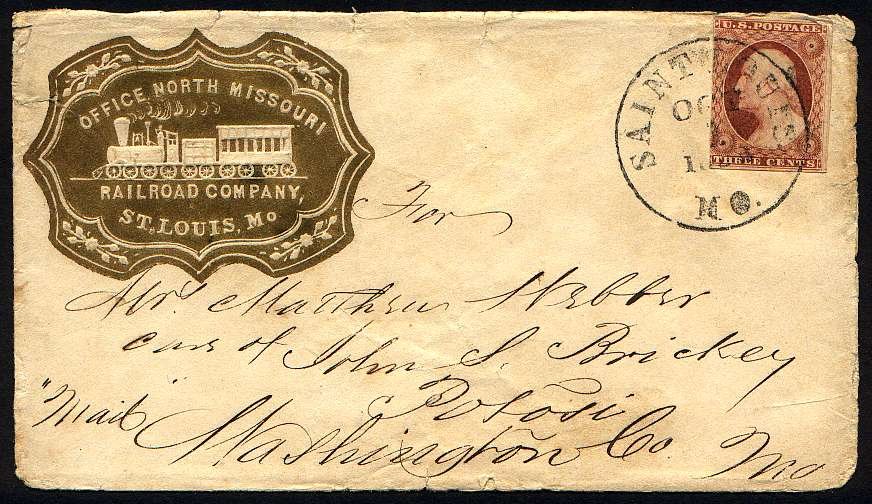 OFFICE NORTH MISSOURI
RAILROAD COMPANY,
ST. LOUIS, Mo
U.S. POSTAGE
THREE CENTS
SAINT LOUIS
MO.
For
Mr. Matthew Webber
care of John S. Brickey
Potosi
"Mail"
Washington Co. Mo